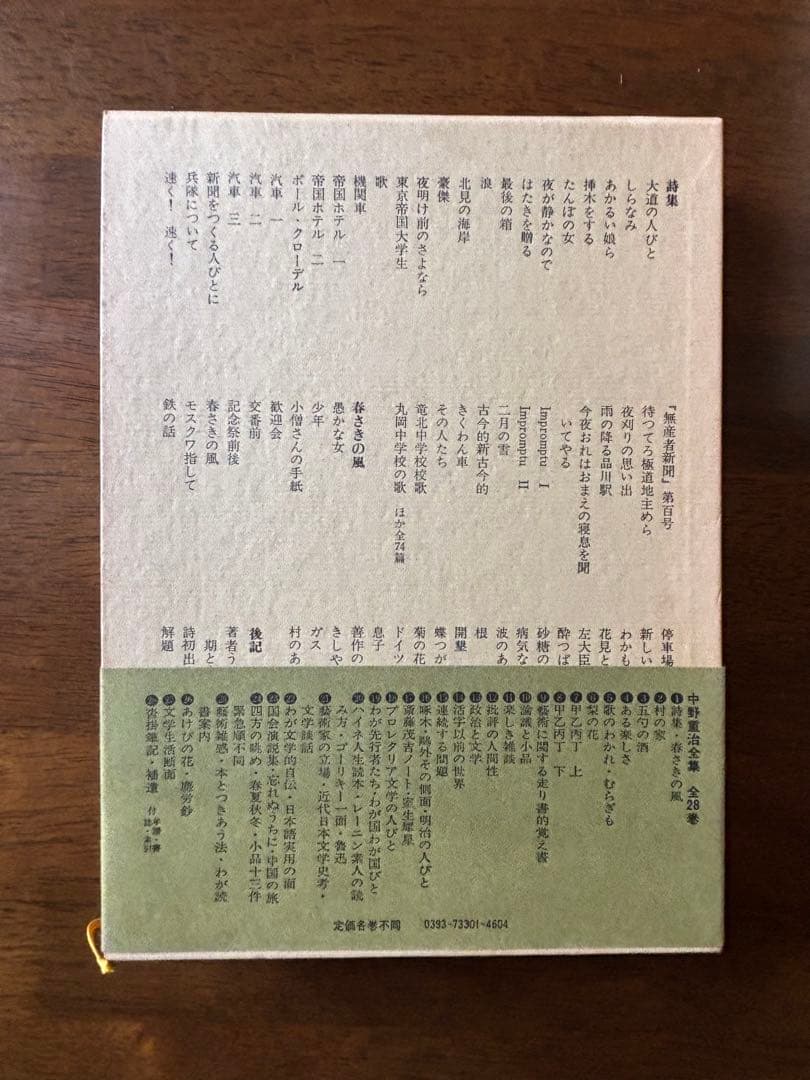 詩集
大道の人びと
しらなみ
あかるい娘ら
挿木をする
たんぼの女
夜が静かなので
はたきを贈る
最後の箱
浪
北見の海岸
豪傑
夜明け前のさよなら
東京帝国大学生
歌
機関車
帝国ホテル 一
帝国ホテル 二
ポール・クローデル
汽車 一
汽車 二
汽車 三
新聞をつくる人びとに
兵隊について
速く! 速く!
『無産者新聞』第百号
待つてろ極道地主めら
夜刈りの思い出
雨の降る品川駅
今夜おれはおまえの寝息を聞
いてやる
Impromptu I
Impromptu II
二月の雪
古今的新古今的
きくわん車
その人たち
竜北中学校校歌
丸岡中学校の歌 ほか全74篇
春さきの風
愚かな女
少年
小僧さんの手紙
歓迎会
交番前
記念祭前後
春さきの風
モスクワ指して
鉄の話
停車場
新しい
わかも
花見と
左大臣
酔つぱ
砂糖の
病気な
波のあ
根
開墾
蝶つが
菊の花
ドイツ
息子
善作の
きしや
ガス
村のあ
後記
著者う
期と
詩初出
解題
中野重治全集 全28巻
❶詩集・春さきの風
❷村の家
❸五勺の酒
❹ある楽しさ
❺歌のわかれ・むらぎも
❻梨の花
❼甲乙丙丁 上
❽甲乙丙丁 下
❾藝術に関する走り書的覚え書
❿論議と小品
⓫楽しき雑談
⓬批評の人間性
⓭政治と文学
⓮活字以前の世界
⓯連続する問題
⓰啄木・鷗外その側面・明治の人びと
⓱斎藤茂吉ノート・室生犀星
⓲プロレタリア文学の人びと
⓳わが先行者たち・わが国わが国びと
⓴ハイネ人生読本・レーニン素人の読
み方・ゴーリキー一面・魯迅
㉑藝術家の立場・近代日本文学史考・
文学談話
㉒わが文学的自伝・日本語実用の面
㉓国会演説集・忘れぬうちに・中国の旅
㉔四方の眺め・春夏秋冬・小品十三件
緊急順不同
㉕藝術雑感・本とつきあう法・わが読
書案内
㉖あけびの花・塵労鈔
㉗文学生活断面
㉘沓掛筆記・補遺 付 年譜・書誌・索引
定価各巻不同 0393-73301-4604